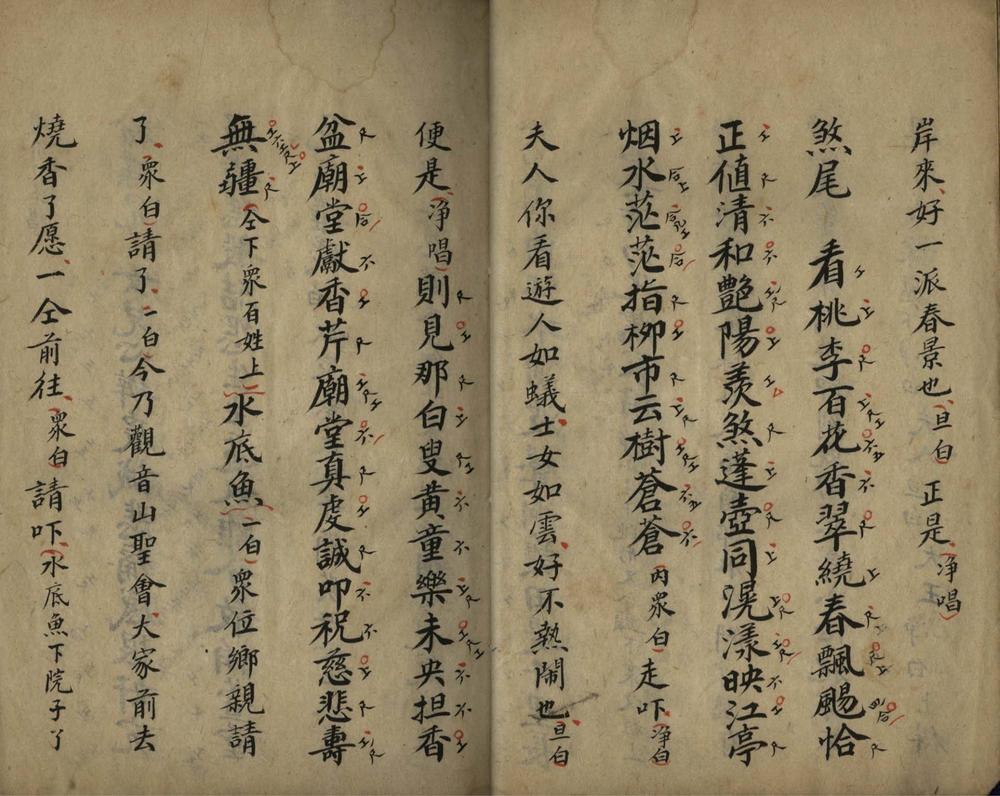 岸來好一派春景也旦白正是淨唱
煞尾 看桃李百花香翠繞春飄颺恰
正值清和艷陽羨煞蓬壺同滉漾映江亭
烟水茫茫指柳市云樹蒼蒼內衆白走吓淨白
夫人你看遊人如蟻士女如雲好不熱鬧也旦白
便是淨唱則見那白叟黄童樂未央担香
盆廟堂獻香芹廟堂真虔誠叩祝慈悲壽
無疆仝下衆百姓上水底魚一白衆位鄉親請
了衆白請了一白今乃觀音山聖會大家前去
燒香了愿一仝前往衆白請吓水底魚下院子丫